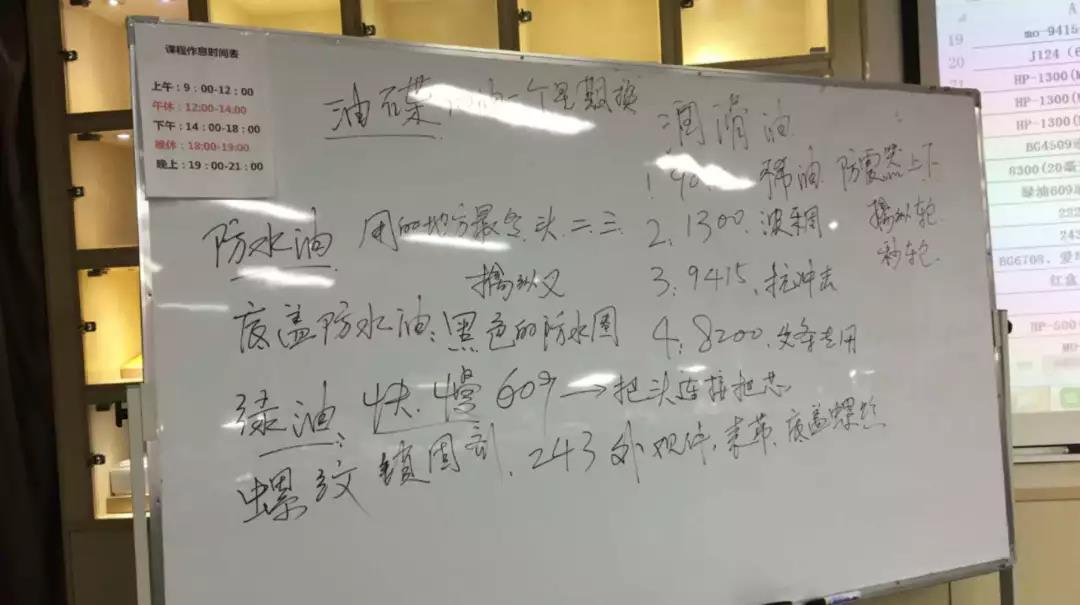 课程作息时间表
上午：9：00-12：00
午休：12:00-14:00
下午：14：00-18：00
晚休：18:00-19:00
晚上：19：00-21：00
油碟 一个星期换
润滑油
1. 稀油 防震器上下
防水油 用的地方最多 头二三
2. 1300
擒纵轮
秒轮
擒纵叉
3. 9415 抗冲击
底盖防水油 黑色的防水圈
4. 8200 专用
绿油 快 慢 609 → 把头连接把芯
螺纹锁固剂 243 外观件 表带 底盖螺丝
A
19
mo-9415
20
J124
21
HP-1300
HP-1300
HP-1300
BG4509
8300(20毫
绿油609
222
243
BG6708
红盒
HP-500
MO-